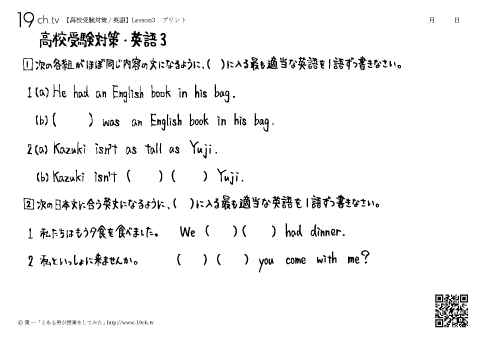 19ch.tv 【高校受験対策/英語】Lesson3 プリント 月 日
高校受験対策・英語3
1 次の各組がほぼ同じ内容の文になるように、( )に入る最も適当な英語を1語ずつ書きなさい。
1 (a) He had an English book in his bag.
(b) ( ) was an English book in his bag.
2 (a) Kazuki isn't as tall as Yuji.
(b) Kazuki isn't ( ) ( ) Yuji.
2 次の日本文に合う英文になるように、( )に入る最も適当な英語を1語ずつ書きなさい。
1 私たちはもう夕食を食べました。 We ( ) ( ) had dinner.
2 私といっしょに来ませんか。 ( ) ( ) you come with me?
© 葉一「とある男が授業をしてみた」http://www.19ch.tv